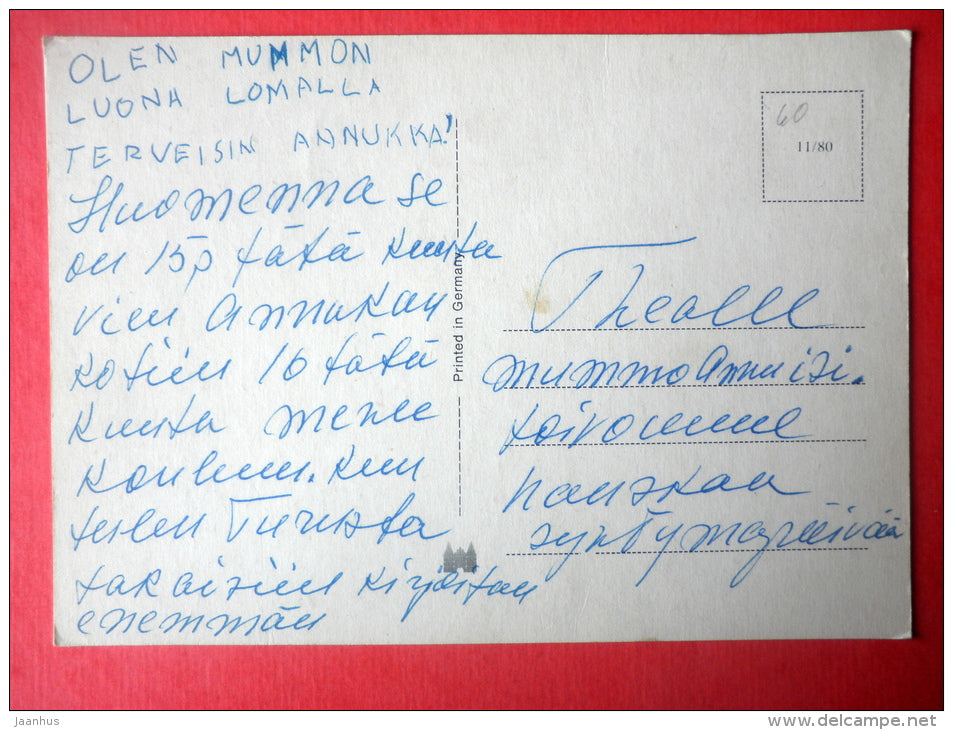 OLEN MUMMON
LUONA LOMALLA
TERVEISIN ANNUKKA!
Huomenna se
on 15p tätä kuuta
vien Annukan
kotiin 16 tätä
kuuta menee
kouluun. kun
tulen Turusta
takaisiin kirjoitan
enemmän
Printed in Germany
60
11/80
Thealle
mummo Annu isi.
toivomme
hauskaa
syntymäpäivää
Jaanhus
www.delcampe.net